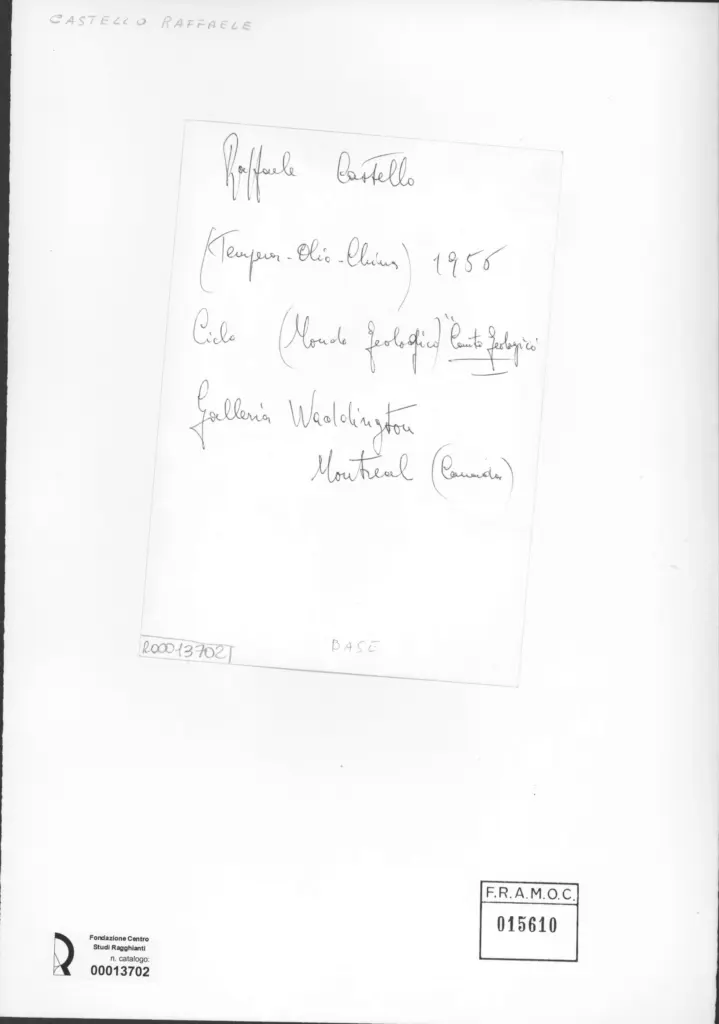 CASTELLO RAFFAELE
Raffaele Castello
(Tempera - Olio - China) 1956
Ciclo (Mondo geologico) "Canto geologico
Galleria Waddington
Montreal (Canada)
R00013702
BASE
F.R.A.M.O.C.
015610
Fondazione Centro
Studi Ragghianti
n. catalogo:
00013702